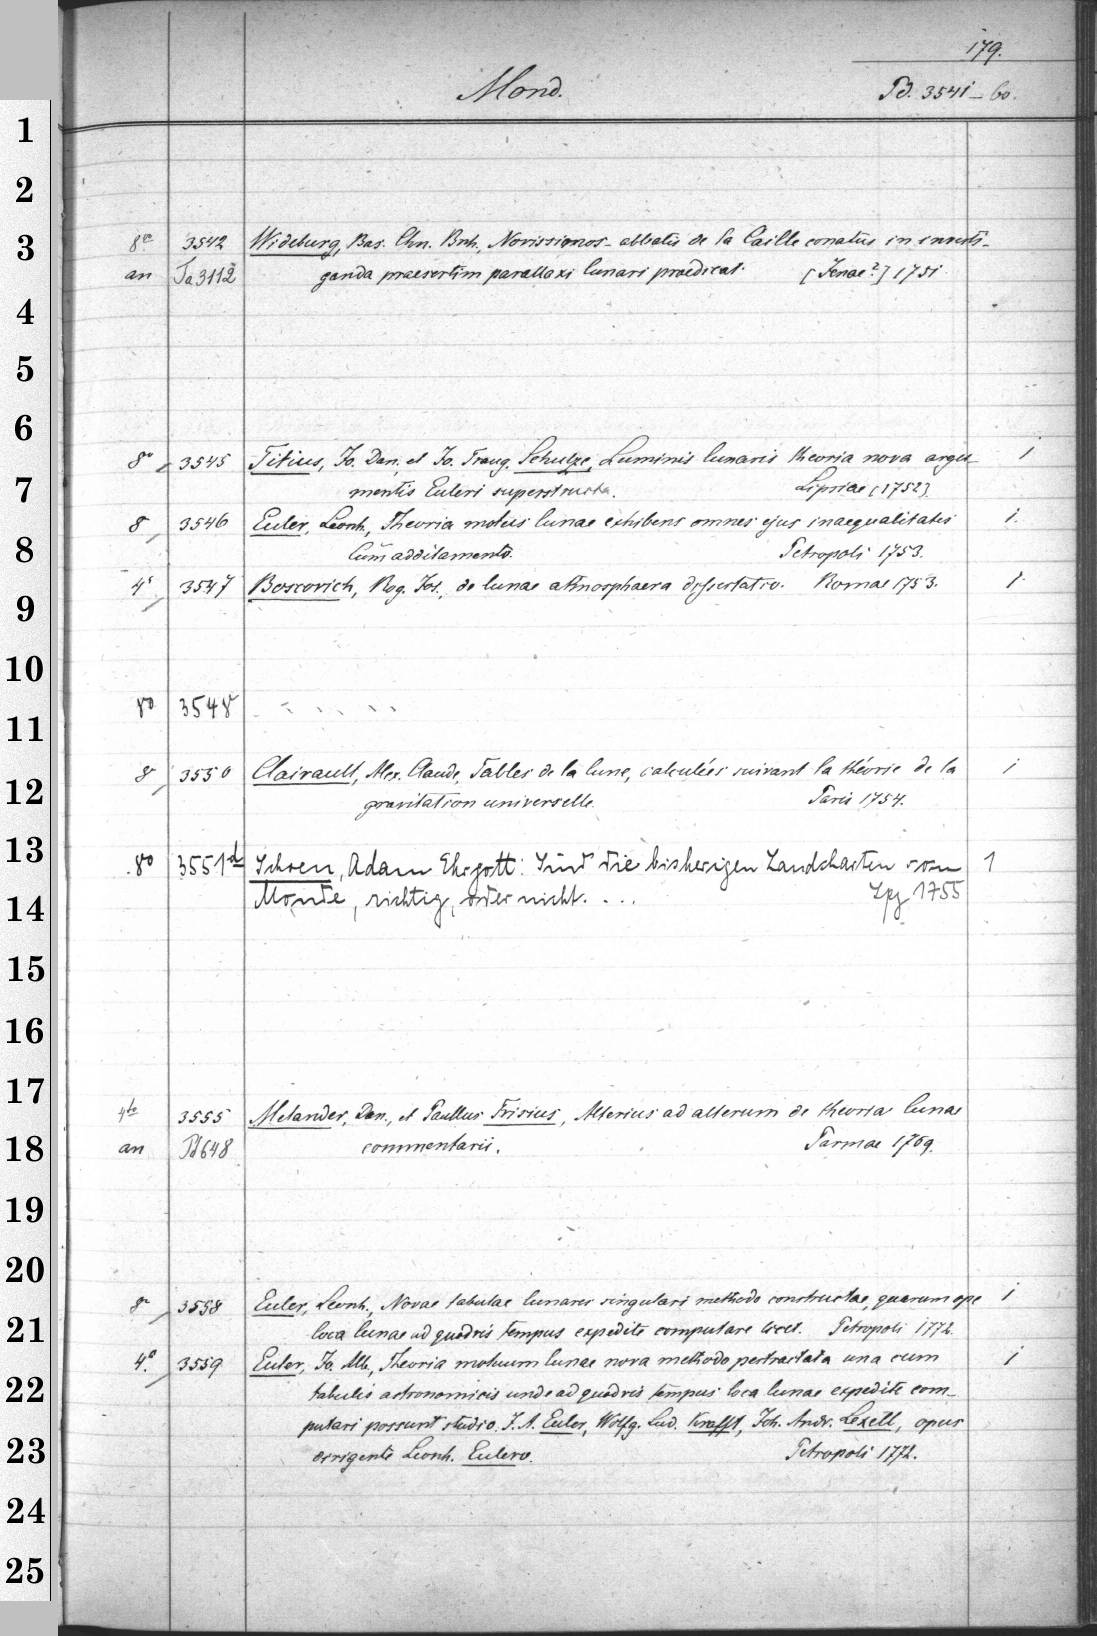 179.
Mond. Pd. 3541-60.
1
2
3
8vo 3542 Wideburg, Bas. Chn. Bnh. Novissimos abbatis de la Caille conatus in investi-
an Ta 3112 ganda praesertim parallaxi lunari praedicat. [Jenae?] 1751
4
5
6
8° 3545 Titius, Jo. Dan. et Jo. Traug. Schulze, Luminis lunaris theoria nova argu- 1
7
mentis Euleri superstructa. Lipsiae (1752)
8 3546 Euler, Leonh., Theoria motus lunae exhibens omnes ejus inaequalitates 1.
8
Cum additamento. Petropoli 1753.
4° 3547 Boscovich, Rog. Jos., de lunae atmosphaera dissertatio. Romae 1753. 1
9
10
8° 3548
11
8 3550 Clairault, Alex. Claude, Tables de la lune, calculées suivant la théorie de la 1
12
gravitation universelle. Paris 1754.
13
8° 3551d Schoen, Adam Ehrgott: Sind die bisherigen Landcharten vom 1
Monde, richtig, oder nicht. ... Lpz 1755
14
15
16
17
4to 3555 Melander, Dan., et Paullus Frisius, Alterius ad alterum de theoria lunae
an Pd 648 commentarii. Parmae 1769.
18
19
20
8° 3558 Euler, Leonh., Novae tabulae lunares singulari methodo constructae, quarum ope 1
21
loca lunae ad quodvis tempus expedite computare licet. Petropoli 1772.
4.° 3559 Euler, Jo. Alb., Theoria motuum lunae nova methodo pertractata una cum 1
22
tabulis astronomicis unde ad quodvis tempus loca lunae expedite com-
putari possunt studio J. A. Euler, Wolfg. Lud. Krafft, Joh. Andr. Lexell, opus
23
dirigente Leonh. Eulero. Petropoli 1772.
24
25